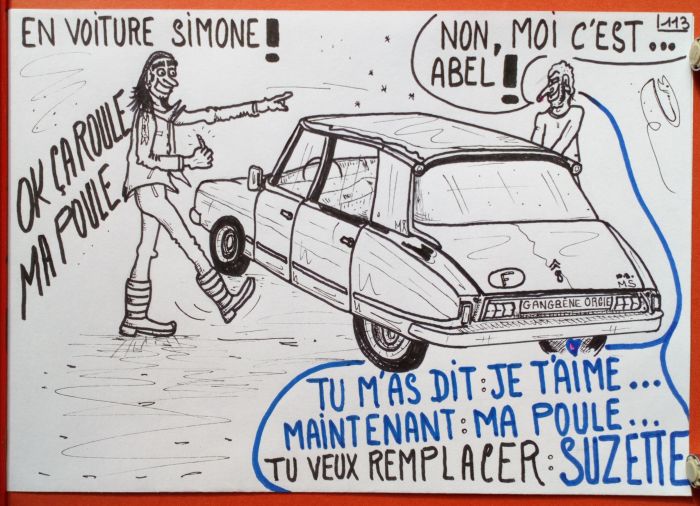 EN VOITURE SIMONE!
NON, MOI C'EST...
ABEL!
113
OK ÇA ROULE
MA POULE
F
MS
GANGBÈNE ORGIE
TU M'AS DIT: JE T'AIME...
MAINTENANT: MA POULE...
TU VEUX REMPLACER: SUZETTE